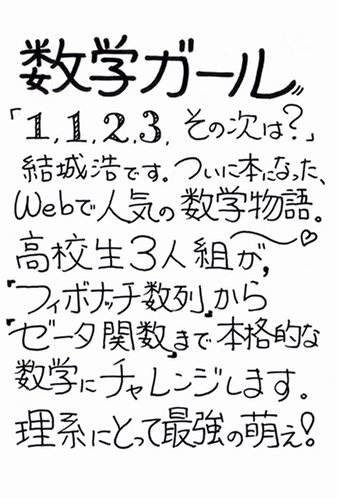 数学ガール〃
「1,1,2,3,その次は?」
結城浩です。ついに本になった、
Webで人気の数学物語。
高校生3人組が、
『フィボナッチ数列』から
『ゼータ関数』まで本格的な
数学にチャレンジします。
理系にとって最強の萌え!